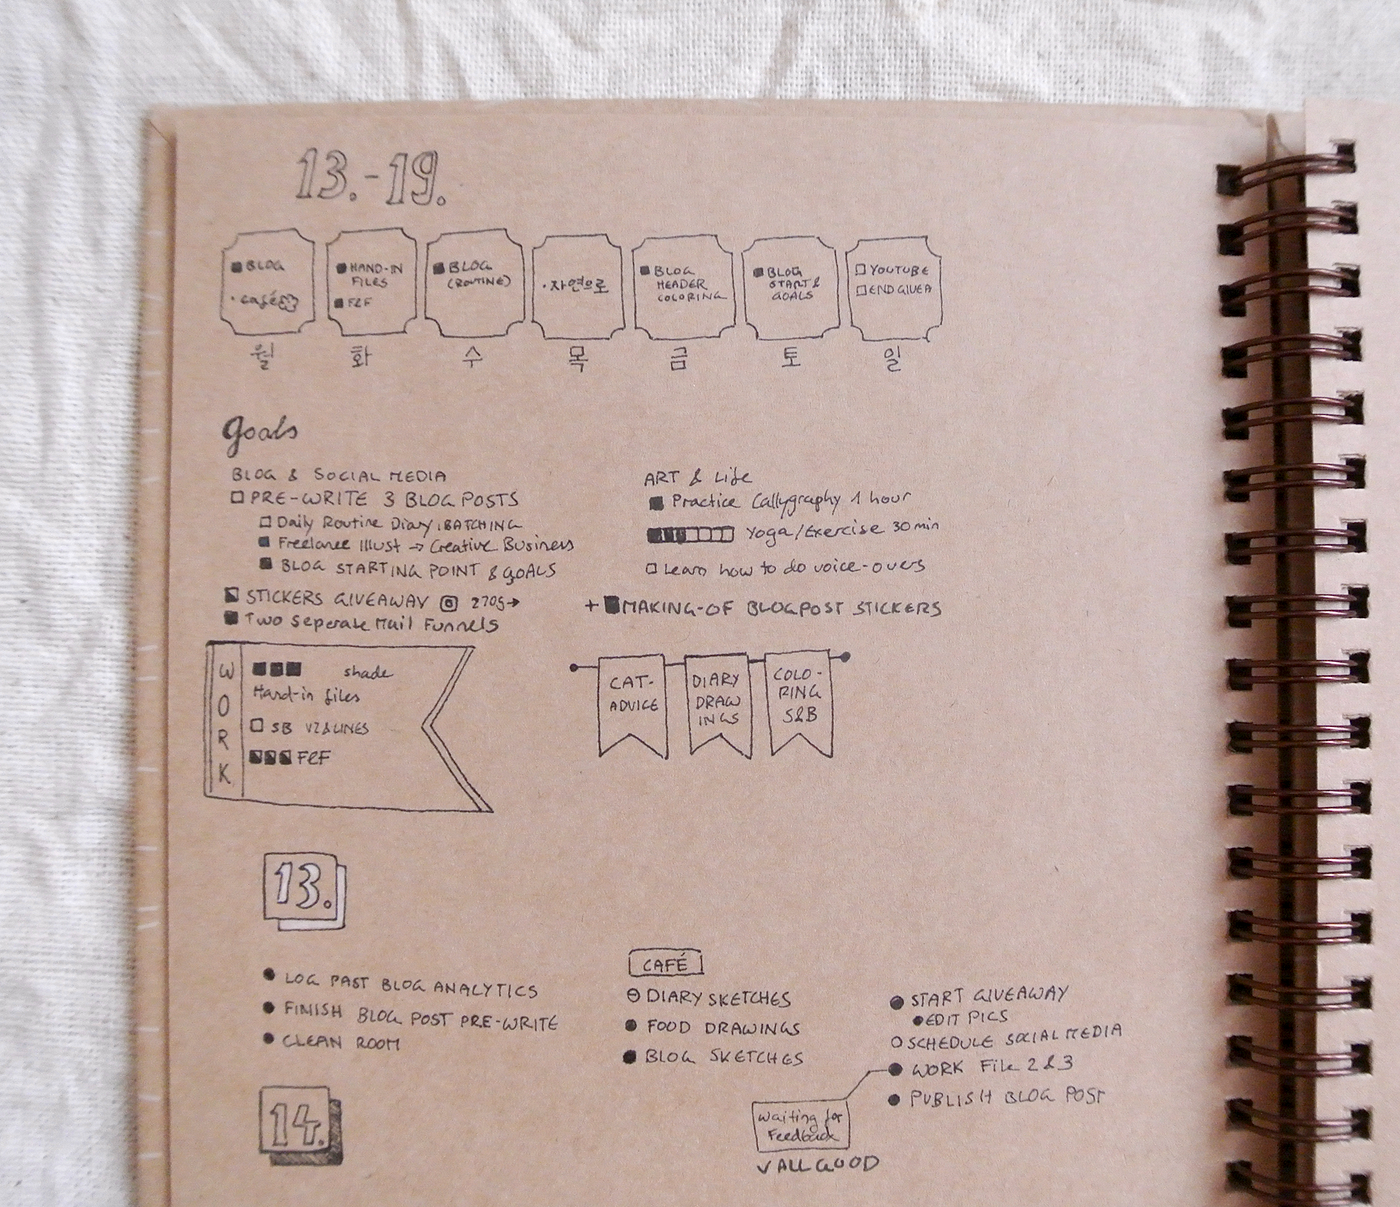 13.-19.
BLOG
· café
월
HAND-IN
FILES
F2F
화
BLOG
(ROUTINE)
수
· 자연으로
목
BLOG
HEADER
COLORING
금
BLOG
START &
GOALS
토
YOUTUBE
END GIVEA
일
goals
BLOG & SOCIAL MEDIA
PRE-WRITE 3 BLOG POSTS
Daily Routine Diary, BATCHING
Freelance Illust → Creative Business
BLOG STARTING POINT & GOALS
STICKERS GIVEAWAY 270g→
Two Seperate Mail Funnels
ART & Life
Practice Callygraphy 1 hour
Yoga/Exercise 30min
Learn how to do voice-overs
+ MAKING-OF BLOGPOST STICKERS
WORK
shade
Hand-in files
SB V2&LINES
F2F
CAT-
ADVICE
DIARY
DRAW
INGS
COLO-
RING
S&B
13.
• LOG PAST BLOG ANALYTICS
• FINISH BLOG POST PRE-WRITE
• CLEAN ROOM
CAFÉ
DIARY SKETCHES
• FOOD DRAWINGS
• BLOG SKETCHES
• START GIVEAWAY
• EDIT PICS
○ SCHEDULE SOCIAL MEDIA
• WORK File 2&3
• PUBLISH BLOG POST
Waiting for
Feedback
√ ALL GOOD
14.